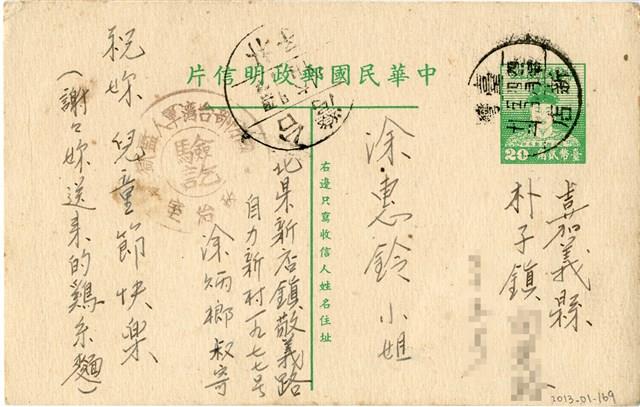 中華民國郵政明信片
20
臺幣貳角
新店
臺灣
嘉義縣
朴子鎮
涂惠鈴小姐
右邊只寫收信人姓名住址
北県新店鎮敬義路
自力新村一九七七号
涂炳榔叔寄
驗訖
祝妳兒童節快樂
(謝々妳送来的鷄糸麵)
2013-01-169